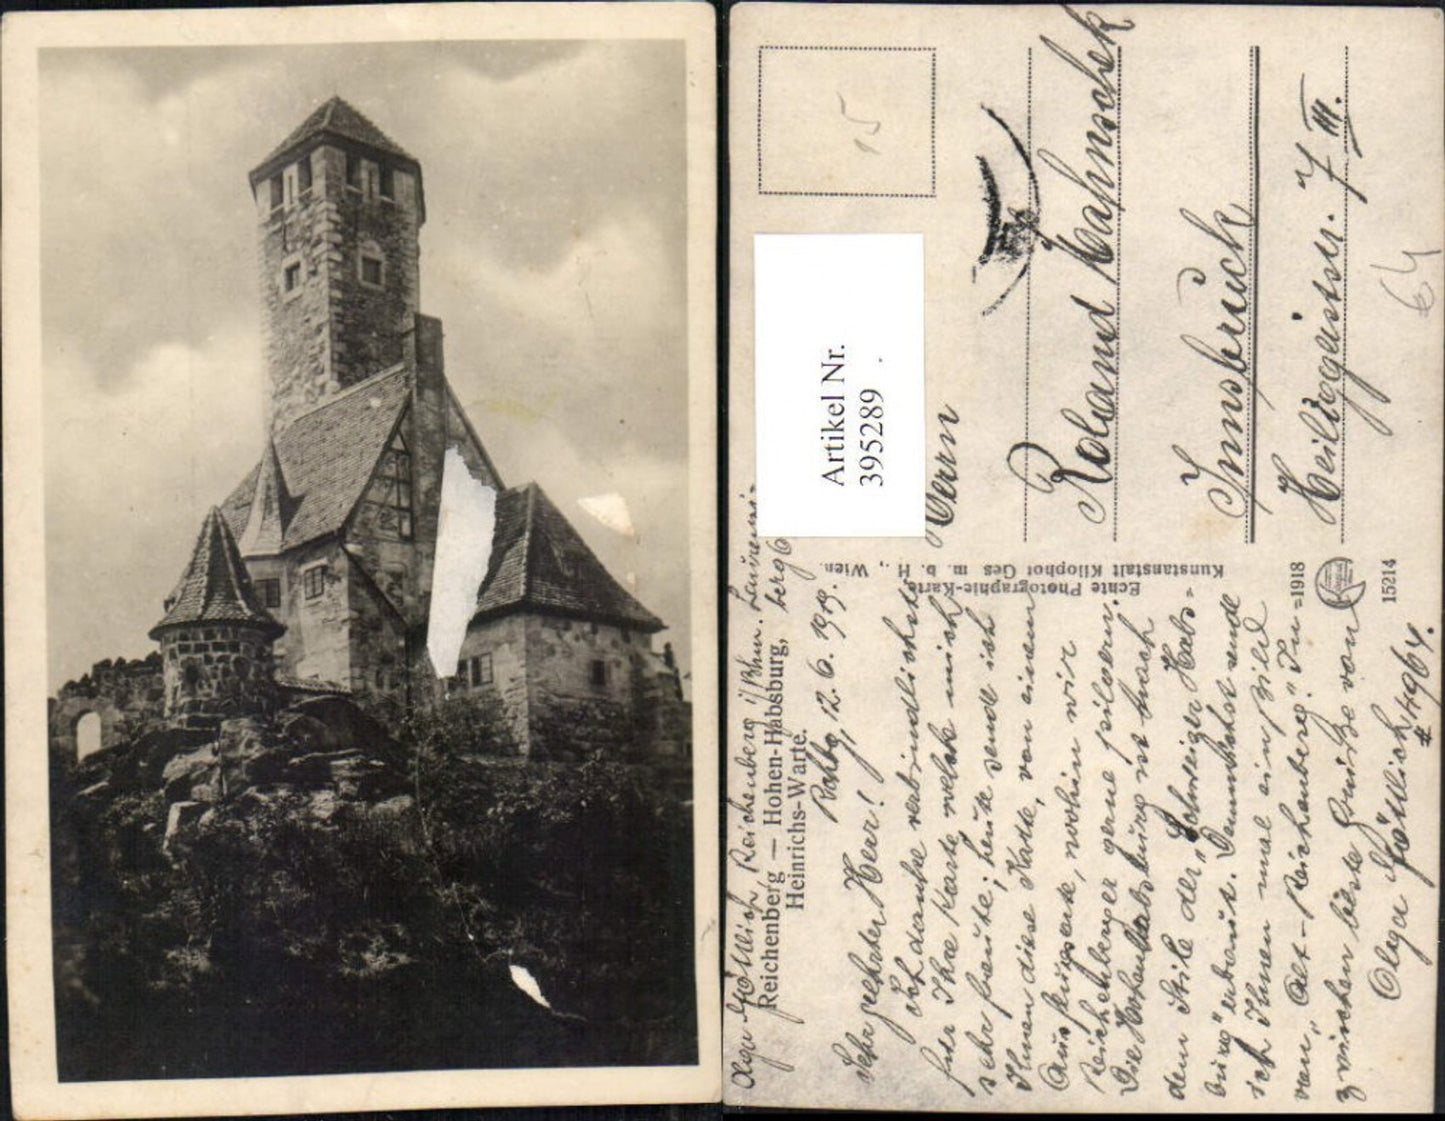 Olga Göttlich Reichenberg i/Böhm.
Reichenberg — Hohen-Habsburg,
Heinrichs-Warte.
12.6.1919.
Sehr geehrter Herr!
Ich danke verbindlichst
für Ihre Karte welche mich
sehr freute; heute sende ich
Ihnen diese Karte von einem
Ausflugsorte, wohin wir
Reichenberger gerne pilgern.
Die Hohenhabsburg ist nach
dem Stile der „Schweizer Habs=
burg" erbaut. Demnächst sende
ich Ihnen mal ein Bild
von „Alt-Reichenberg". In=
zwischen beste Grüße von
Olga Göttlich
# 4964.
Echte Photographie-Karte
Kunstanstalt Kilophot Ges. m. b. H., Wien.
1918
15214
15
Artikel Nr.
395289
Herrn
Roland
Innsbruck
Heiliggeiststr. 7 III.
64